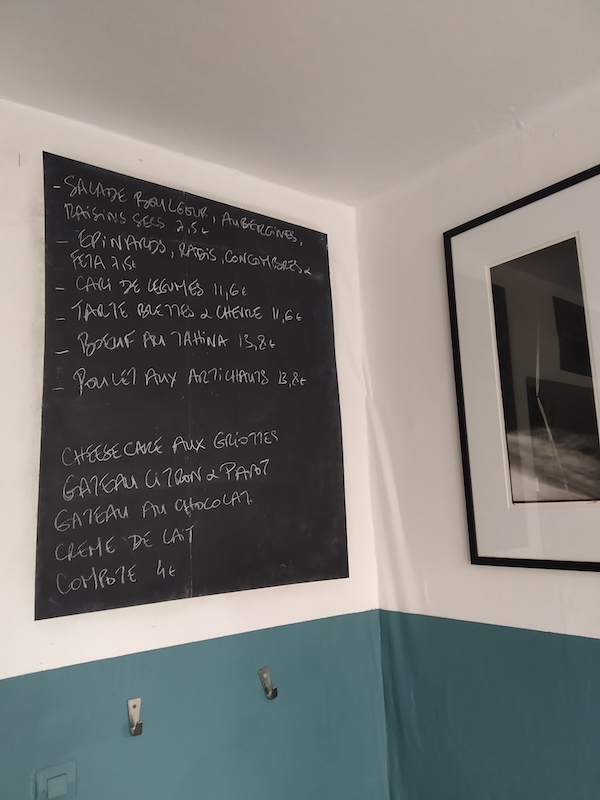 - SALADE BOULGOUR, AUBERGINES,
RAISINS SECS 7,5€
- EPINARDS, RADIS, CONCOMBRES &
FETA 7,5€
- CARI DE LEGUMES 11,6€
- TARTE BLETTES & CHEVRE 11,6€
- BOEUF AU TAHINA 13,8€
- POULET AUX ARTICHAUTS 13,8€
CHEESECAKE AUX GRIOTTES
GATEAU CITRON & PAVOT
GATEAU AU CHOCOLAT.
CREME DE LAIT
COMPOTE 4€